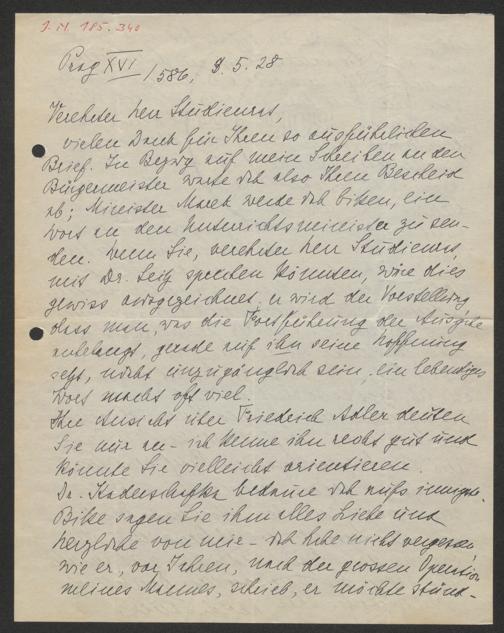 J. N. 185.340
Prag XVI/1586, 9.5.28
Verehrter Herr Studienrat,
vielen Dank für Ihren so ausführlichen
Brief. In Bezug auf mein Schreiben an den
Bürgermeister warte ich also Ihren Bescheid
ab; Minister Marek werde ich bitten, ein
Wort an den Unterrichtsminister zu sen-
den. Wenn Sie, verehrter Herr Studienrat,
mit Dr. Seitz sprechen könnten, wäre dies
gewiss ausgezeichnet u wird der Vorstellung
dass man, was die Fortführung der Ausgabe
anbelangt, gerade auf ihn seine Hoffnung
setzt, nicht unzugänglich sein, ein lebendiges
Wort macht oft viel.
Ihre Ansicht über Friedrich Adler deuten
Sie nur an – ich kenne ihn recht gut und
könnte Sie vielleicht orientieren.
Dr. bedaure ich aufs innigste.
Bitte sagen Sie ihm alles Liebe und
Herzliche von mir – ich habe nicht vergessen
wie er, vor Jahren, nach der grossen Operation
meines Mannes, schrieb, er möchte stünd-